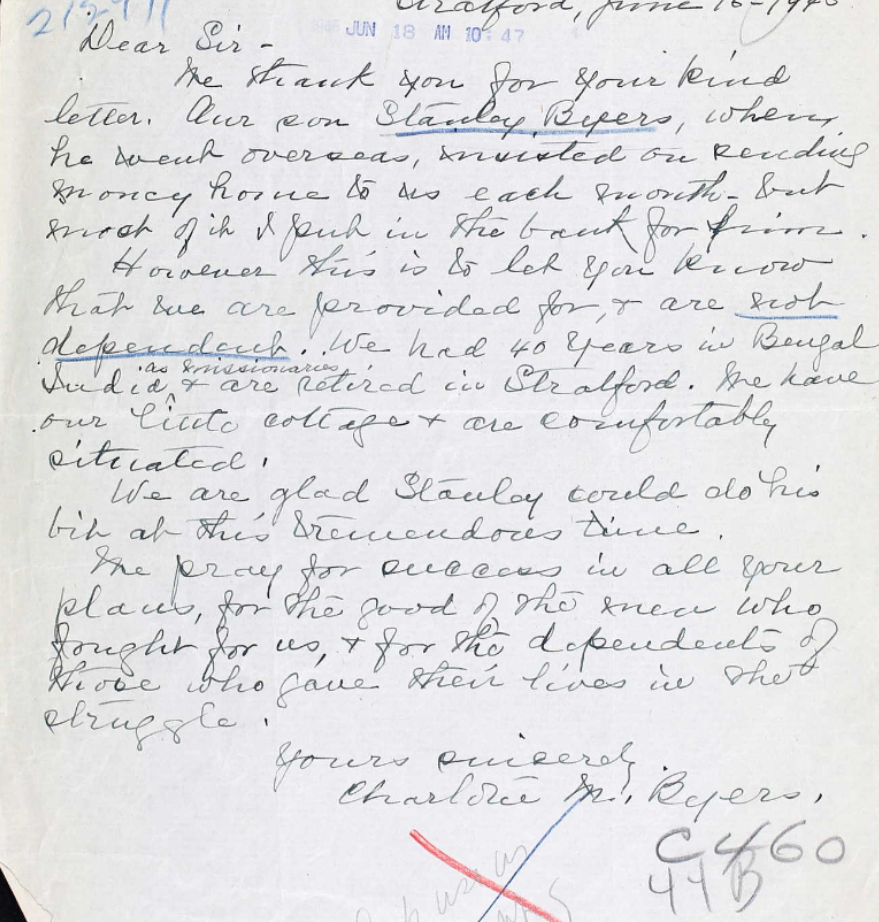 Stratford, June 16-1945
JUN 18 AM 10:47
Dear Sir -
We thank you for your kind
letter. Our son Stanley Byers, when
he went overseas, insisted on sending
money home to us each month - but
most of it I put in the bank for him.
However this is to let you know
that we are provided for, & are not
dependent. We had 40 years in Bengal
as missionaries
India, & are retired in Stratford. We have
our little cottage & are comfortably
situated.
We are glad Stanley could do his
bit at this tremendous time.
We pray for success in all your
plans, for the good of the men who
fought for us, & for the dependents of
those who gave their lives in the
struggle.
Yours sincerely,
Charlotte M. Byers.
C460
44B